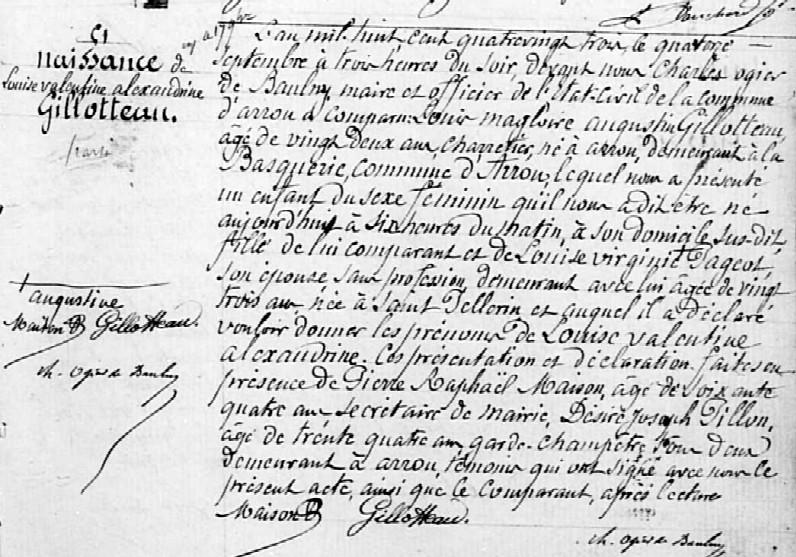 51
naissance
de
Louise valentine alexandrine
Gillotteau.
augustine
Maison Gillotteau.
Ch. Ogier de Baulny
L'an mil huit cent quatrevingt trois, le quatorze —
septembre à trois heures du soir, devant nous Charles ogier
de Baulny, maire et officier de l'Etat-Civil de la commune
d'arrou a comparu Louis magloire augustin Gillotteau,
agé de vingt deux ans, charretier, né à arrou, demeurant à la
Basquerie, commune d'Arrou, lequel nous a présenté
un enfant du sexe féminin qu'il nous a dit être né
aujourd'hui à six heures du matin, à son domicile sus-dit,
fille de lui comparant et de Louise virginie Pageot,
son epouse, sans profession, demeurant avec lui, agée de vingt
trois ans née à Saint Pellerin et auquel il a déclaré
vouloir donner les prénoms de Louise valentine
alexandrine. Ces présentation et déclaration faites en
présence de Pierre Raphaël Maison, agé de soixante
quatre ans secrétaire de mairie, Désiré Joseph Pillon,
agé de trente quatre ans garde-champêtre, tous deux
demeurant à arrou, témoins qui ont signé avec nous le
présent acte, ainsi que le comparant, après lecture
Maison Gillotteau.
Ch. Ogier de Baulny